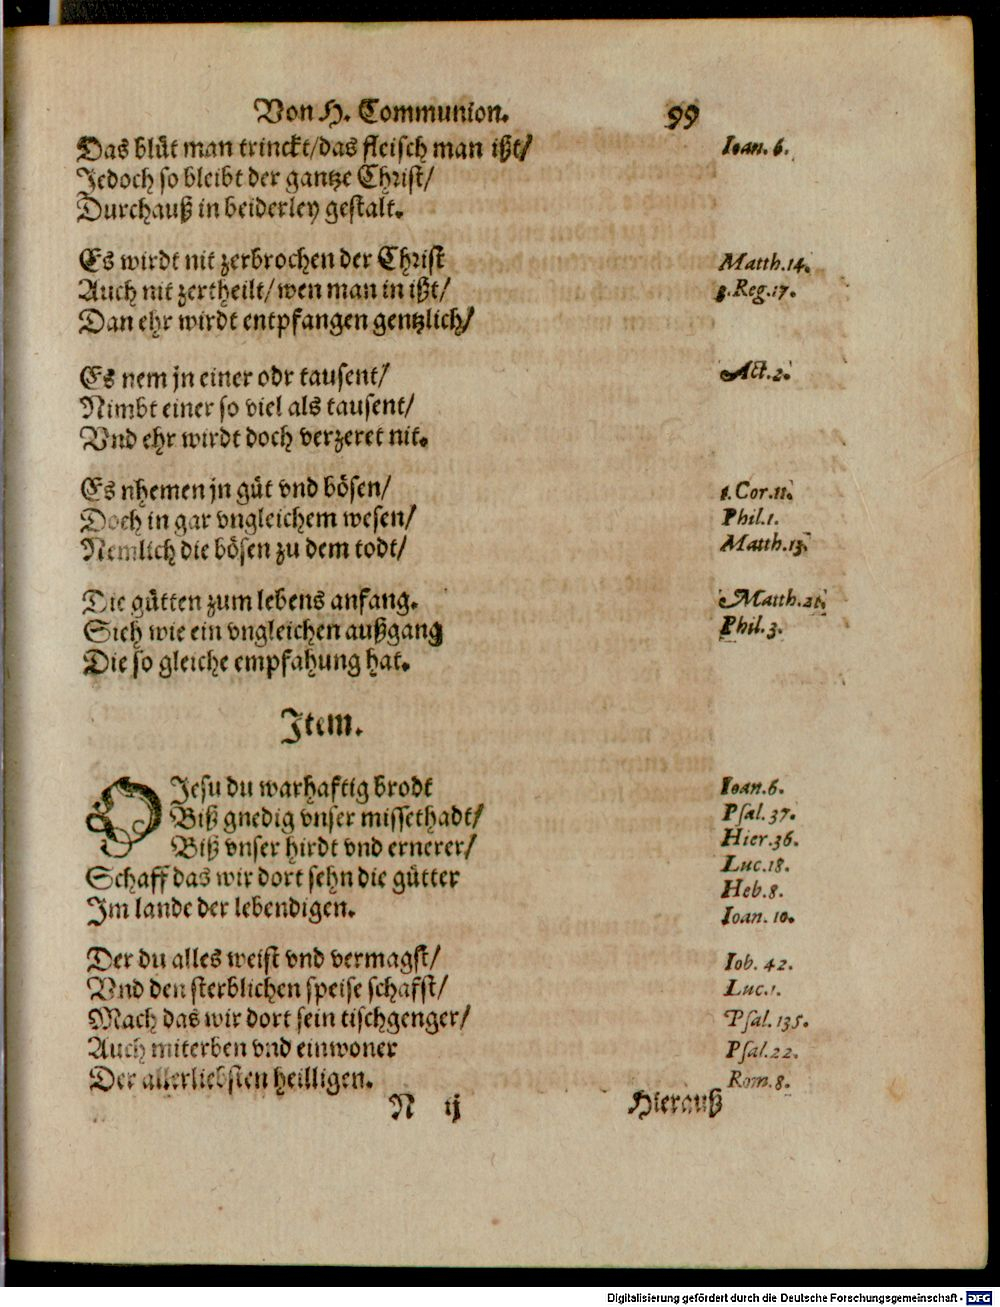 Von H. Communion. 99
Das blůt man trinckt/das fleisch man ißt/ Ioan. 6.
Jedoch so bleibt der gantze Christ/
Durchauß in beiderley gestalt.
Es wirdt nit zerbrochen der Christ Matth.14.
Auch nit zertheilt/wen man in ißt/ 3.Reg.17.
Dan ehr wirdt entpfangen gentzlich/
Es nem jn einer odr tausent/ Act.2.
Nimbt einer so viel als tausent/
Vnd ehr wirdt doch verzeret nit.
Es nhemen jn gůt vnd bösen/ 1.Cor.11.
Doch in gar vngleichem wesen/ Phil.1.
Nemlich die bösen zu dem todt/ Matth.13.
Die gůtten zum lebens anfang. Matth.21.
Sieh wie ein vngleichen außgang Phil.3.
Die so gleiche empfahung hat.
Item.
O Jesu du warhaftig brodt Ioan.6.
Biß gnedig vnser missethadt/ Psal.37.
Biß vnser hirdt vnd ernerer/ Hier.36.
Luc.18.
Schaff das wir dort sehn die gütter Heb.8.
Im lande der lebendigen. Ioan. 10.
Der du alles weist vnd vermagst/ Iob. 42.
Vnd den sterblichen speise schafst/ Luc.1.
Mach das wir dort sein tischgenger/ Psal.135.
Auch miterben vnd einwoner Psal.22.
Der allerliebsten heilligen. Rom.8.
N ij Hierauß
Digitalisierung gefördert durch die Deutsche Forschungsgemeinschaft - DFG